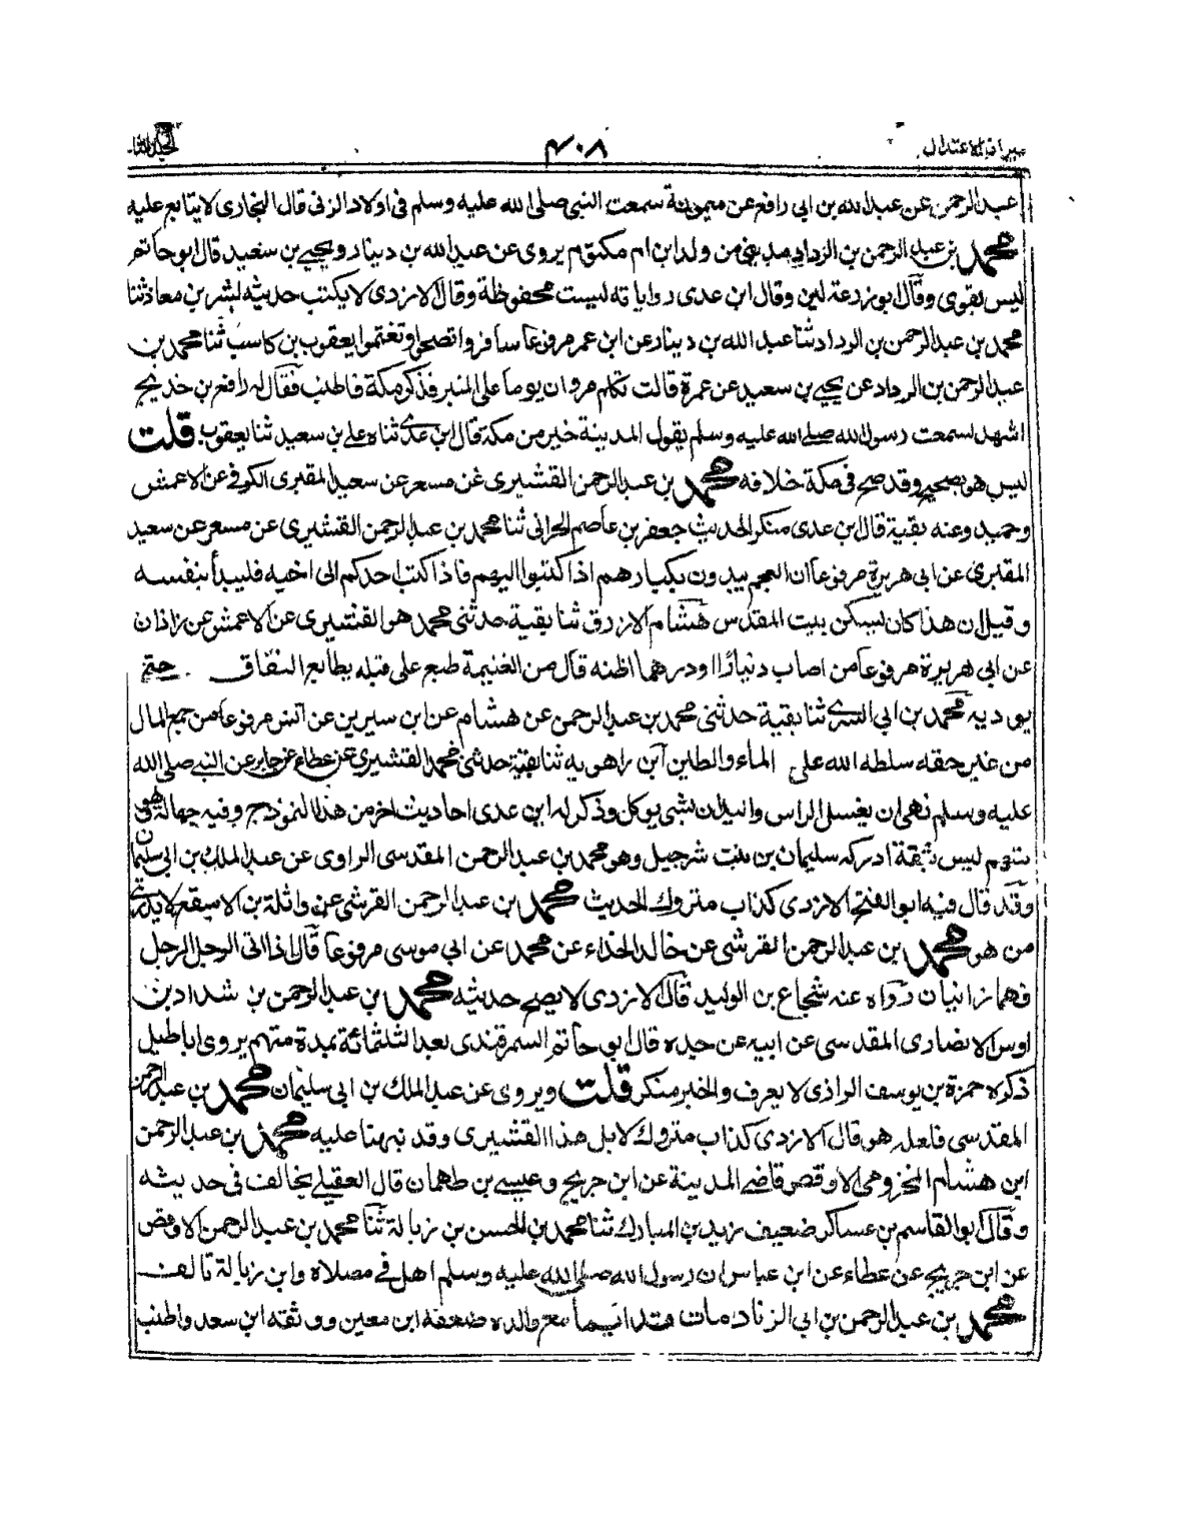 ميزان الاعتدال ٤٠٨ الجلد الثا
عبد الرحمن عن عبيد الله بن ابى رافع عن ميمونة سمعت النبى صلى الله عليه وسلم فى اولاد الزنى قال البخارى لا يتابع عليه
محمد بن عبد الرحمن بن الرداد مدينى من ولد ابن ام مكتوم يروى عن عبد الله بن دينار ويحيى بن سعيد قال ابو حاتم
ليس بقوى وقال ابو زرعة لين وقال ابن عدى رواياته ليست محفوظة وقال الازدى لا يكتب حديثه بشر بن معاذ ثنا
محمد بن عبد الرحمن بن الرداد ثنا عبد الله بن دينار عن ابن عمر مرفوعا سافروا تصحوا وتغتموا يعقوب بن كاسب ثنا محمد بن
عبد الرحمن بن الرداد عن يحيى بن سعيد عن عمرة قالت تكلم مروان يوما على المنبر فذكر مكة فاطنب فقال له رافع بن خديج
اشهد لسمعت رسول الله صلى الله عليه وسلم يقول المدينة خير من مكة قال ابن عدى ثناه على بن سعيد ثنا يعقوب قلت
ليس هو بصحيح وقد صح فى مكة خلافه محمد بن عبد الرحمن القشيرى عن مسعر عن سعيد المقبرى الكوفى عن الاعمش
وحميد وعنه بقية قال ابن عدى منكر الحديث جعفر بن عاصم الحرانى ثنا محمد بن عبد الرحمن القشيرى عن مسعر عن سعيد
المقبرى عن ابى هريرة مرفوعا ان العجم يبدون بكبارهم اذا كتبوا اليهم فاذا كتب احدكم الى اخيه فليبدأ بنفسه
وقيل ان هذا كان يسكن بيت المقدس هشام الازرق ثنا بقية حدثنى محمد هو القشيرى عن الاعمش عن زاذان
عن ابى هريرة مرفوعا من اصاب دنيارًا او درهما اظنه قال من الغنيمة طبع على قبله بطابع النفاق . حتى
يوديه محمد بن ابى السرى ثنا بقية حدثنى محمد بن عبد الرحمن عن هشام عن ابن سيرين عن انس مرفوعا من جمع المال
من غير حقه سلطه الله على الماء والطين ابن راهويه ثنا بقية حدثنى محمد القشيرى عن عطاء عن جابر عن النبى صلى الله
عليه وسلم نهى ان يغسل الراس واليدان بشى يوكل وذكر له ابن عدى احاديث اخر من هذا النموذج وفيه جهالة هو
متهم ليس بثقة ادركه سليمان بن بنت شرجيل وهو محمد بن عبد الرحمن المقدسى الراوى عن عبد الملك بن ابى سليمان
وقد قال فيه ابو الفتح الازدى كذاب متروك الحديث محمد بن عبد الرحمن القرشى عن واثلة بن الاسقع لا يدرى
من هو محمد بن عبد الرحمن القرشى عن خالد الحذاء عن محمد عن ابى موسى مرفوعا قال اذا اتى الرجل الرجل
فهما زانيان رواه عنه شجاع بن الوليد قال الازدى لا يصح حديثه محمد بن عبد الرحمن بن شداد بن
اوس الانصارى المقدسى عن ابيه عن جده قال ابو حاتم السمرقندى بعد الثلثمائة بمدة متهم يروى اباطيل
ذكره حمزة بن يوسف الراذى لا يعرف والخبر منكر قلت ويروى عن عبد الملك بن ابى سليمان محمد بن عبد الرحمن
المقدسى فلعله هو قال الازدى كذاب متروك لا بل هذا القشيرى وقد نبهنا عليه محمد بن عبد الرحمن
ابن هشام المخزومى الاوقص قاضى المدينة عن ابن جريج وعيسى بن طهمان قال العقيلى يخالف فى حديثه
وقال ابو القاسم بن عساكر ضعيف يزيد بن المبارك ثنا محمد بن الحسن بن زبالة ثنا محمد بن عبد الرحمن الاوقص
عن ابن جريج عن عطاء عن ابن عباس ان رسول الله صلى الله عليه وسلم اهل فى مصلاه وابن زبالة تالف
محمد بن عبد الرحمن بن ابى الزناد مات مع والده ضعفه ابن معين ووثقه ابن سعد واطنب